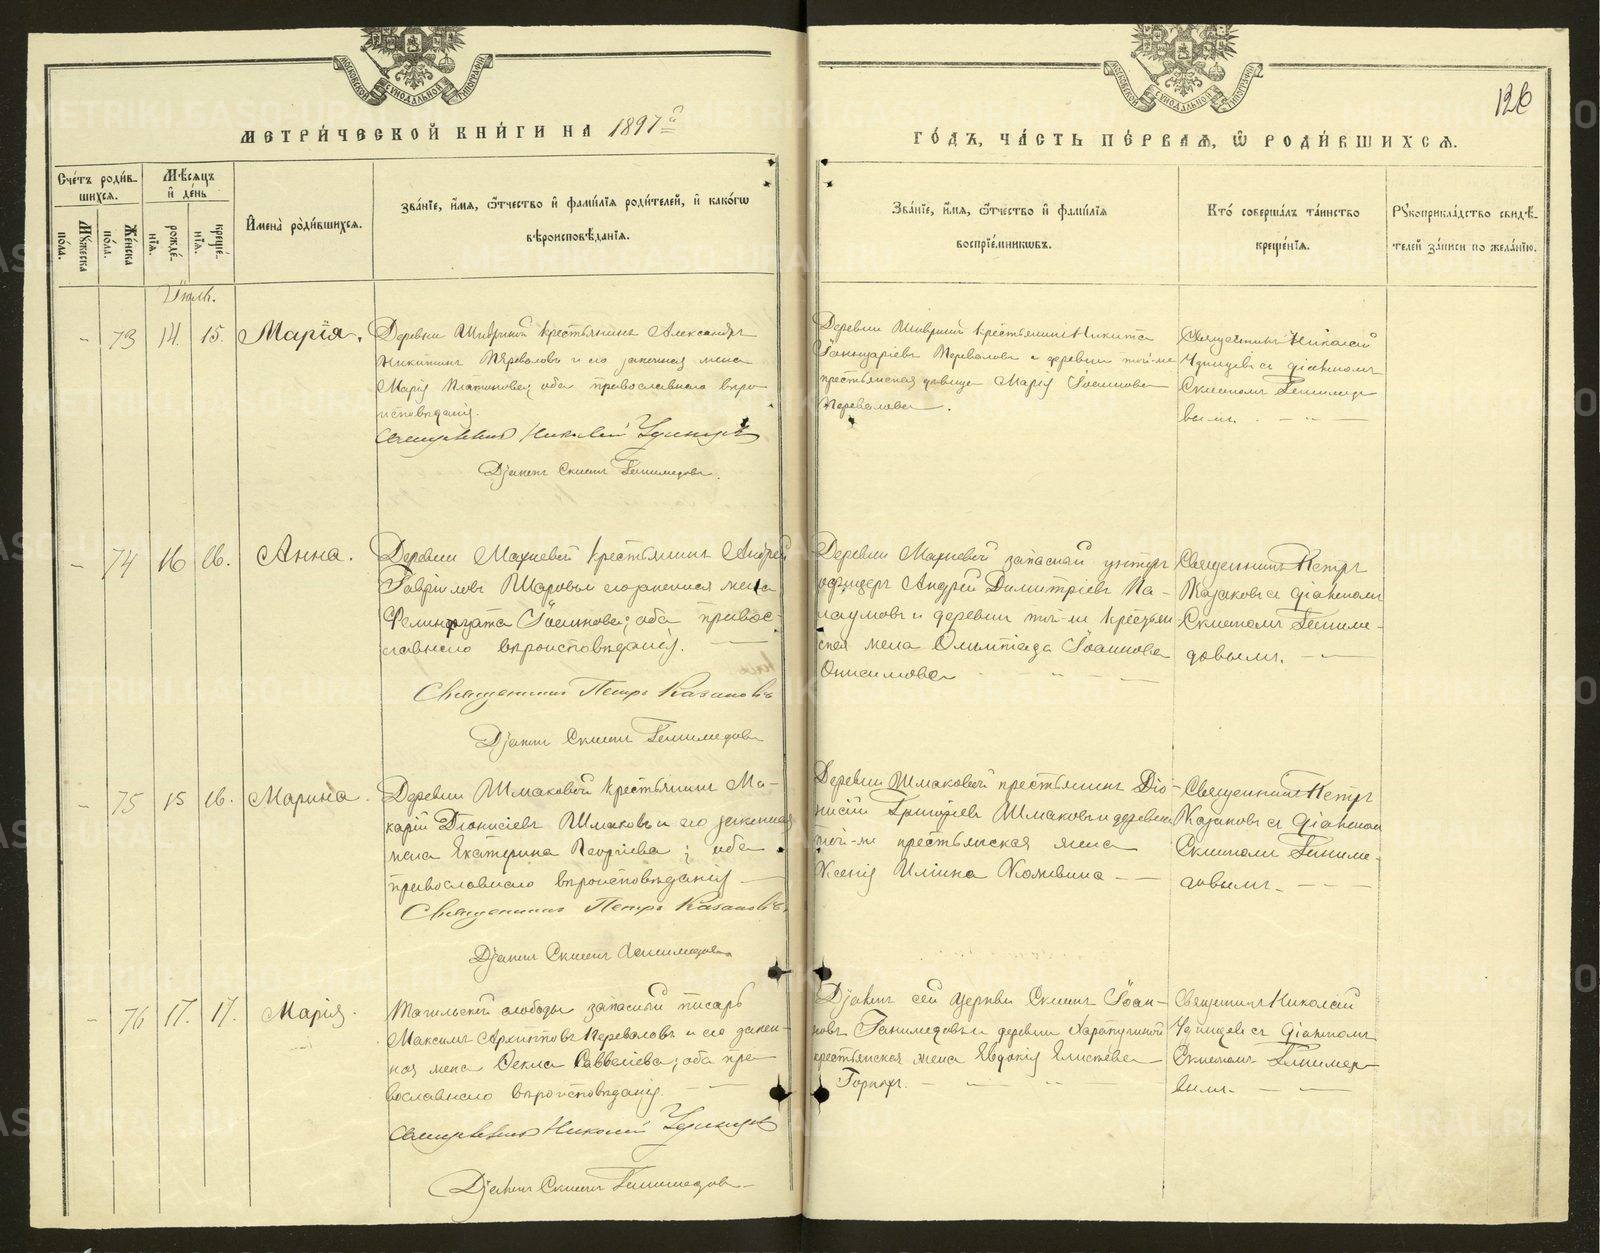 МЕТРИ́ЧЕСКОЙ КНИ́ГИ НА 1897
ГО́ДЪ, ЧА́СТЬ ПЕ́РВАѦ, Ѡ РОДИ́ВШИХСѦ.
126
Сче́тъ роди́в-
шихся.
Мѣ́сяцъ
и де́нь
Мꙋжеска по́ла.
Же́нска по́ла.
рожде́нїѧ.
креще́нїѧ.
И҆мена̀ роди́вшихся.
Зва́нїе, и҆́мѧ, ѻ҆́тчество и҆ фами́лїѧ роди́телей, и҆ како́гѡ
вѣроисповѣ́данїѧ.
Зва́нїе, и҆́мѧ, ѻ҆́тчество и҆ фами́лїѧ
воспрїе́мниковъ.
Кто̀ соверша́лъ та́инство
креще́нїѧ.
Рꙋкоприкла́дство свидѣ́-
телей за́писи по жела́нїю.
Іюль.
- 73 14. 15. Марія.
крестьянинъ Александръ
Никитинъ Переваловъ и его законная жена
Марія Платонова; оба православнаго вѣро
исповѣданія.
Священникъ Николай Удинцевъ
Діаконъ Скипинъ Ганимедовъ.
крестьянинъ Никита
Переваловъ и деревни той-же
крестьянская дѣвица Марія Іоаннова
Перевалова.
Священникъ Николай
Удинцевъ съ діакономъ
Ганимедо
вымъ.
- 74 16 16. Анна.
Деревни Махневой крестьянинъ Андрей
Гавріиловъ Шаровъ и его законная жена
Іоаннова; оба право-
славнаго вѣроисповѣданія.
Священникъ Петръ Казаковъ
Діаконъ Ганимедовъ
Деревни Махневой запасной унтеръ
офицеръ Андрей Димитріевъ Па-
и деревни той-же крестьян
ская жена Олимпіада Іоаннова
Онисимова
Священникъ Петръ
Казаковъ съ діакономъ
Ганиме-
довымъ.
- 75 15 16. Марина.
Деревни Шмаковой крестьянинъ Ма-
карій Діонисіевъ Шмаковъ и его законная
жена Екатерина Георгіева; оба
православнаго вѣроисповѣданія
Священникъ Петръ Казаковъ
Діаконъ Ганимедовъ
Деревни Шмаковой крестьянинъ Діо-
нисій Григоріевъ Шмаковъ и деревни
той-же крестьянская жена
Ксенія Ильина
Священникъ Петръ
Казаковъ съ діакономъ
Ганиме-
довымъ.
- 76 17. 17. Марія.
Тагильской слободы запасный писарь
Максимъ Архиповъ Переваловъ и его закон-
ная жена Ѳекла Савваіева; оба пра-
вославнаго вѣроисповѣданія.
Священникъ Николай Удинцевъ
Діаконъ Ганимедовъ
Діаконъ сей церкви Іоан-
новъ Ганимедовъ и деревни
крестьянская жена Евдокія Елисѣева
Священникъ Николай
Удинцевъ съ діакономъ
Ганимедо
вымъ.
METRIKI.EASO-URAL.RU